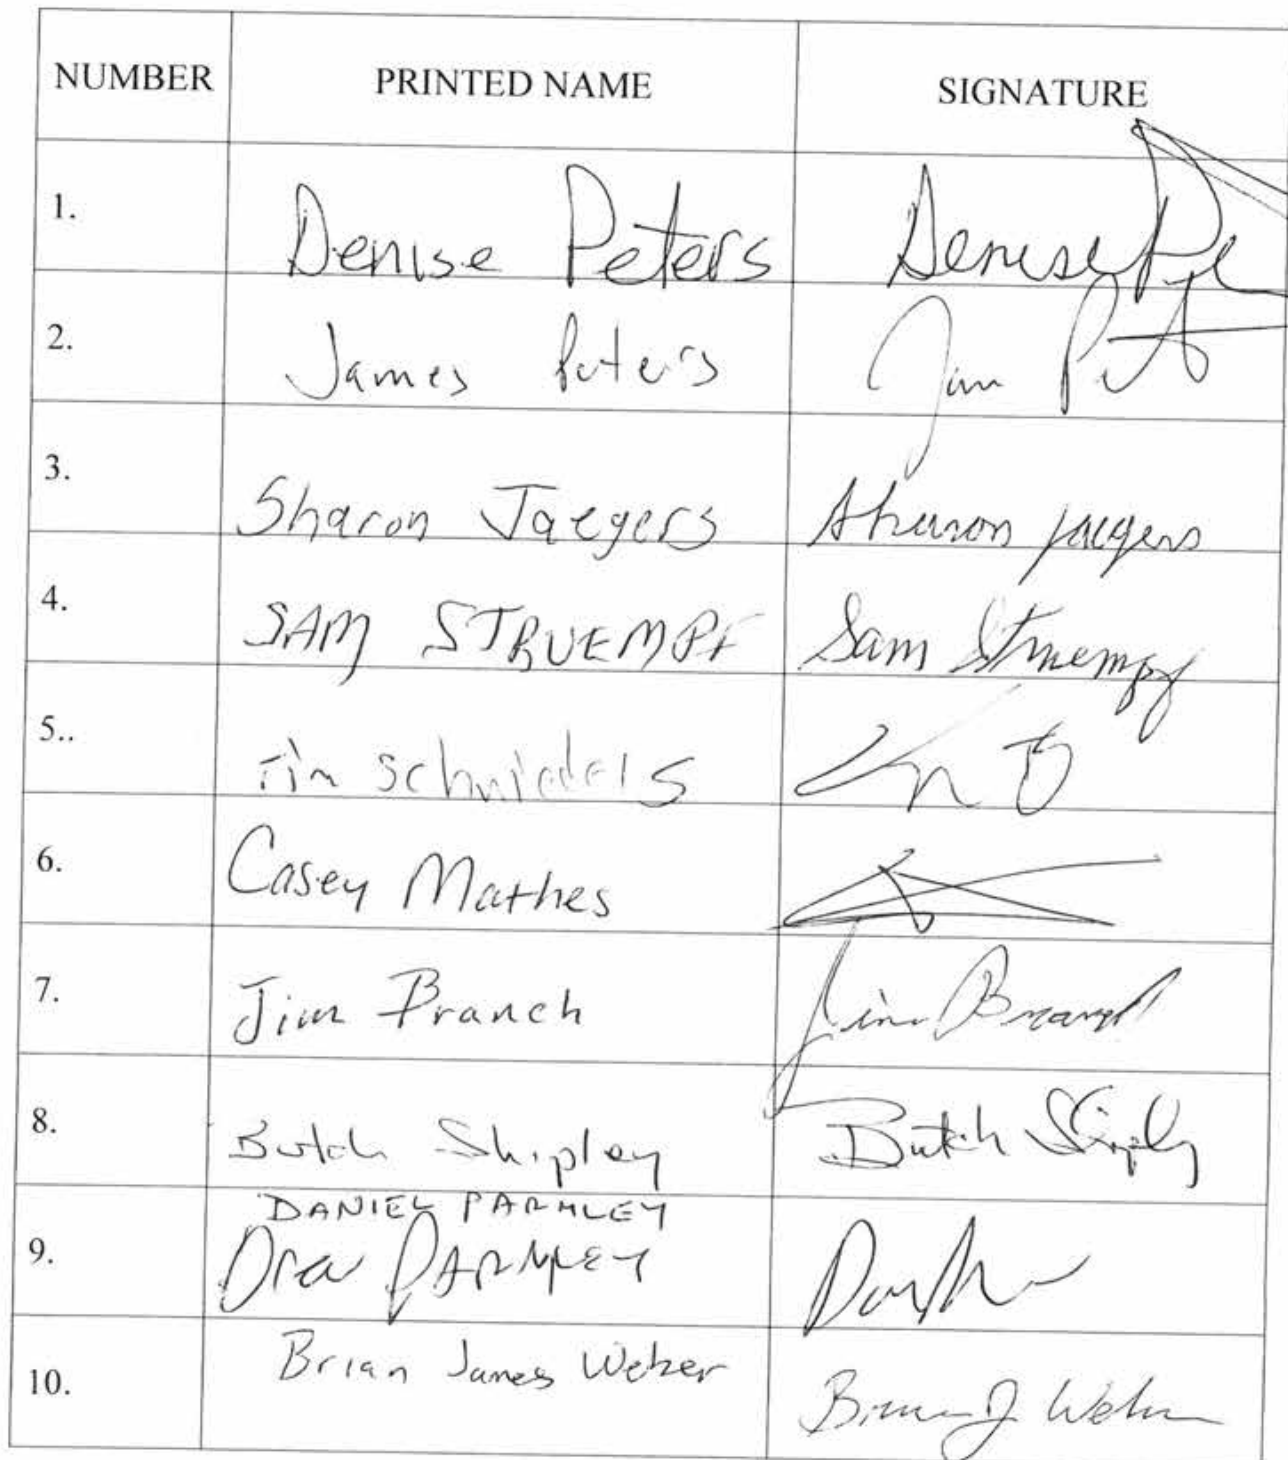 NUMBER PRINTED NAME SIGNATURE
1. Denise Peters Denise Pe
2. James Peters Jim Pet
3. Sharon Jaegers Sharon Jaegers
4. SAM STRUEMPF Sam Struempf
5.. Tim Schnieders
6. Casey Mathes
7. Jim Branch Jim Branch
8. Butch Shipley Butch Shipley
DANIEL PARMLEY
9. Drew PARMLEY
10. Brian James Weber Brian J Weber